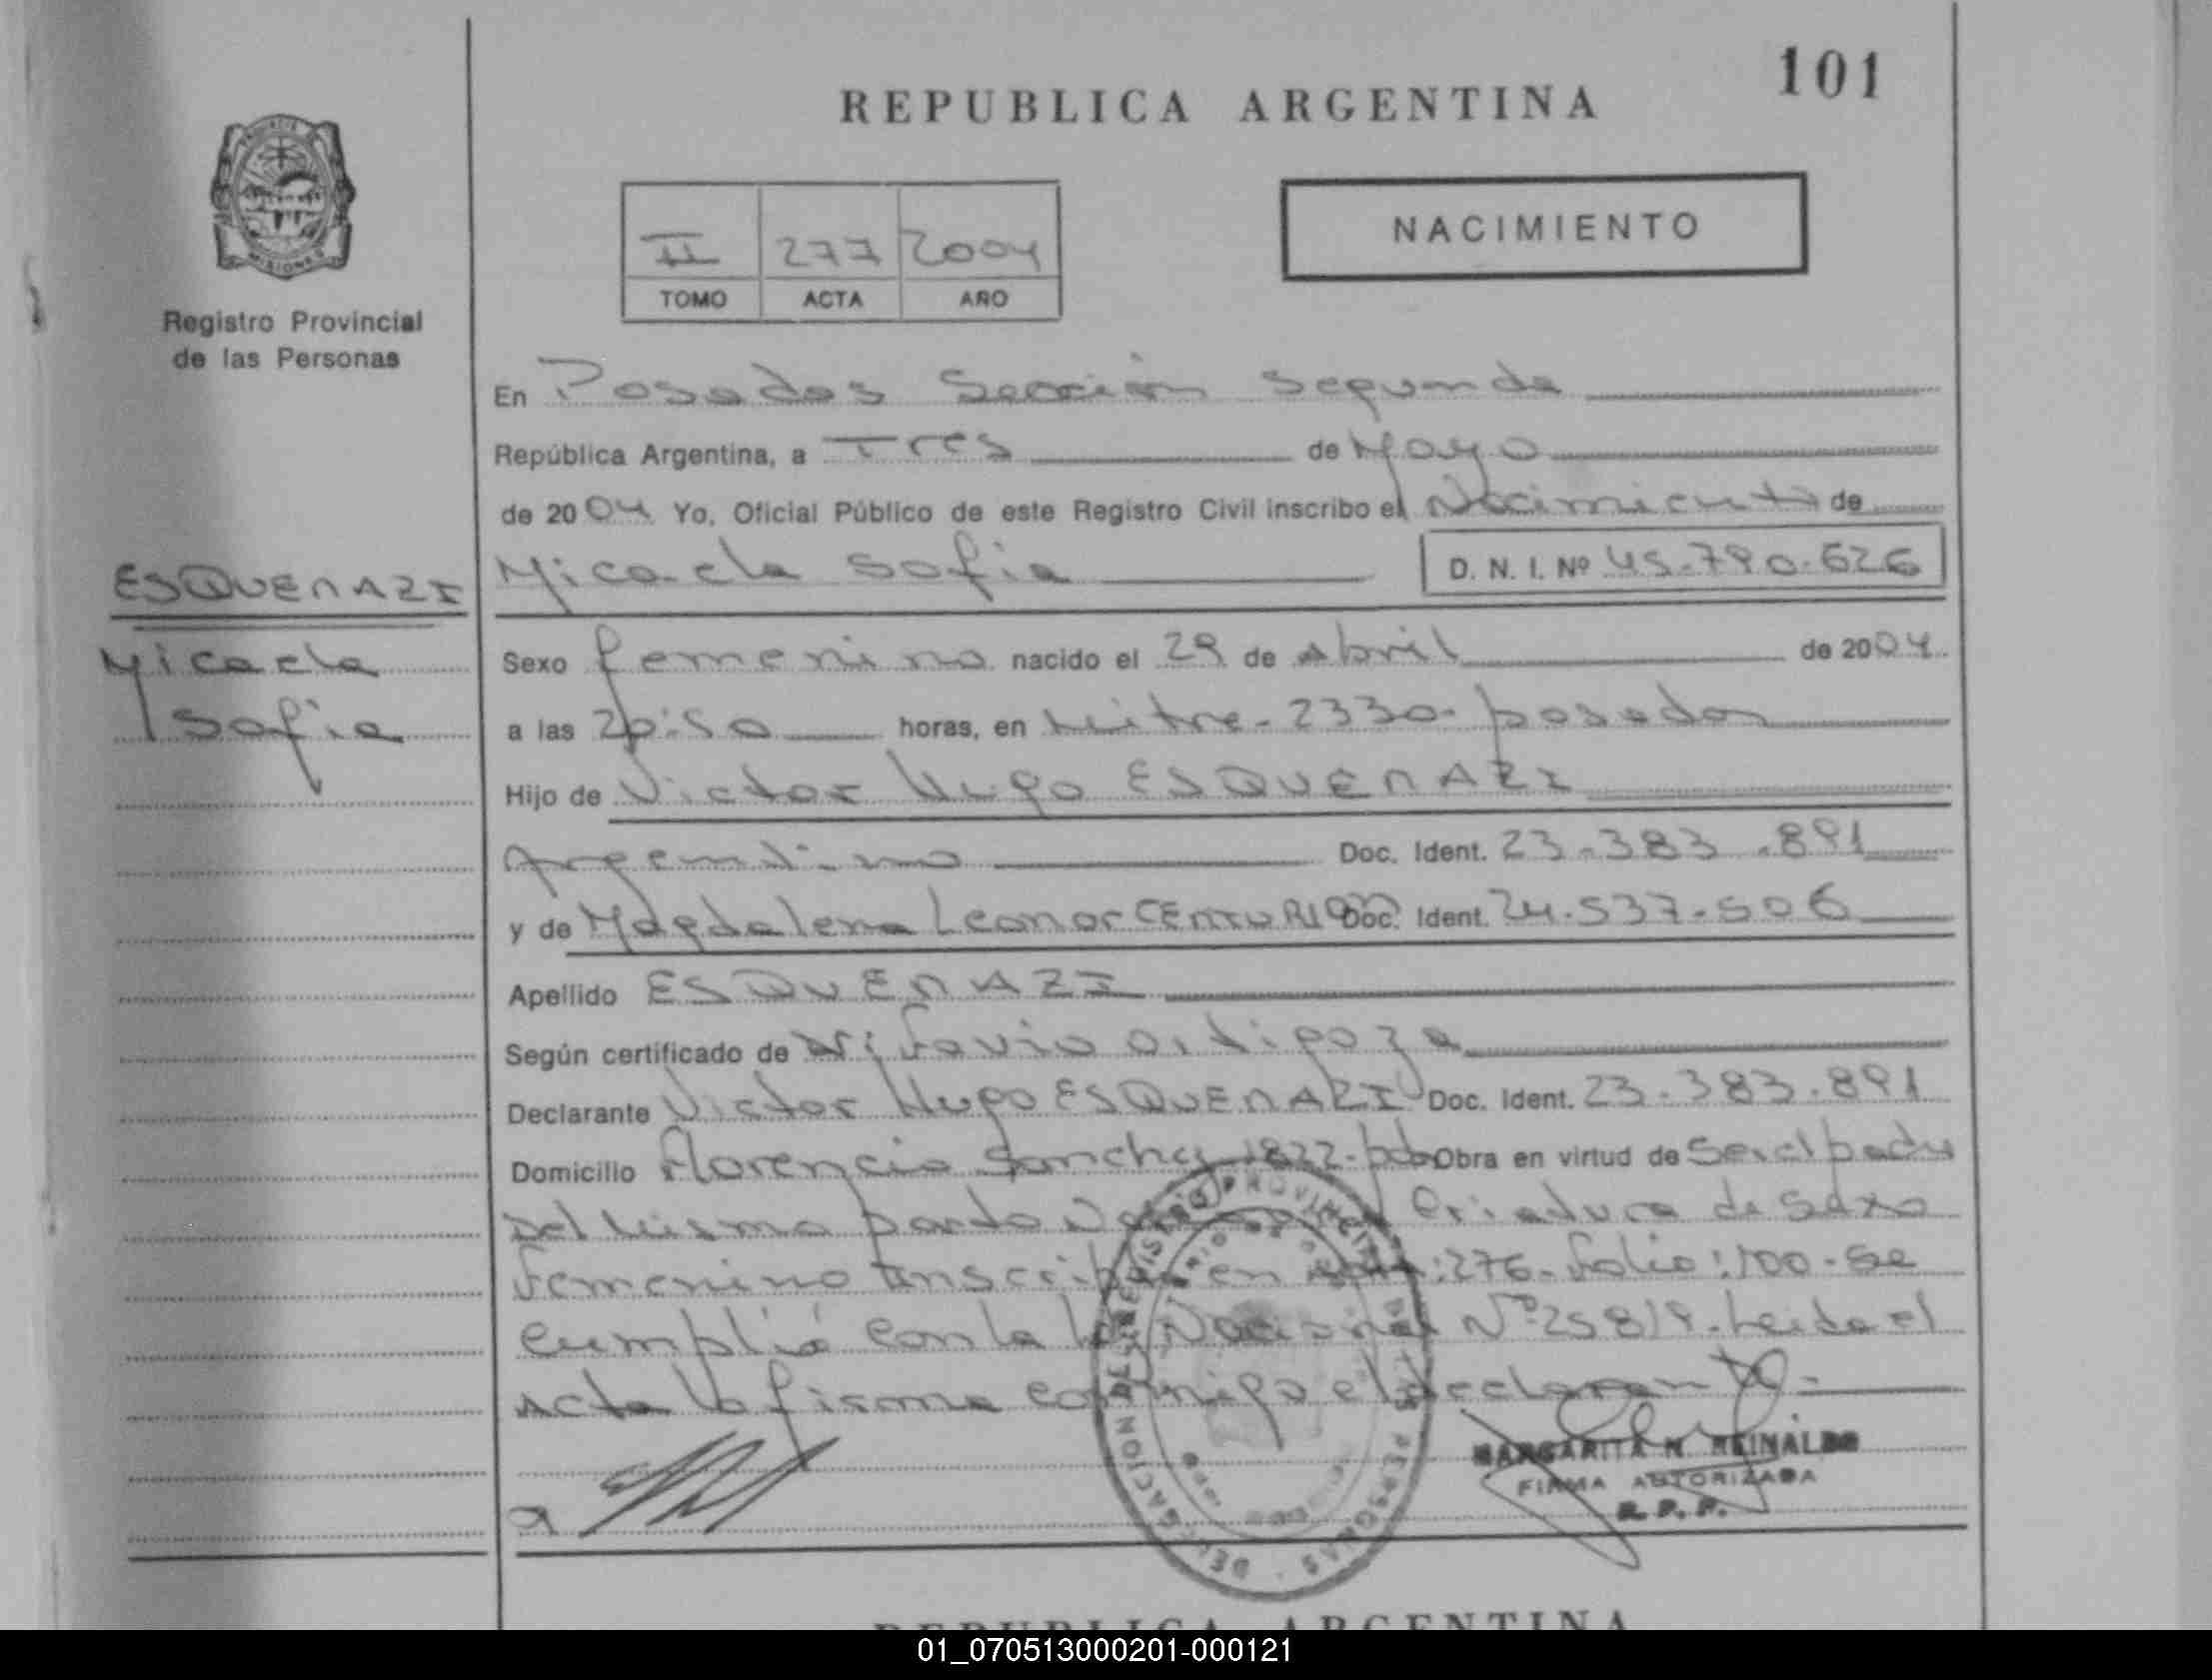 101
REPUBLICA ARGENTINA
MISIONES
Registro Provincial
de las Personas
II 277 2004
TOMO ACTA AÑO
NACIMIENTO
En Posadas Sección Segunda
República Argentina, a Tres de Mayo
de 2004 Yo, Oficial Público de este Registro Civil inscribo el Nacimiento de
ESQUENAZI
Micaela
Sofia
Micaela Sofia D. N. I. Nº 45.790.626
Sexo femenino nacido el 29 de Abril de 2004
a las 20:50 horas, en Mitre-2330-posadas
Hijo de Victor Hugo ESQUENAZI
Argentino Doc. Ident. 23.383.891
y de Magdalena Leonor CENTURION Doc. Ident. 24.537.506
Apellido ESQUENAZI
Según certificado de Favio Ortigoza
Declarante Victor Hugo ESQUENAZI Doc. Ident. 23.383.891
Domicilio Florencio Sanchez 1822-pdas Obra en virtud de Ser el padre
Del mismo parto criatura de sexo
femenino inscripta en acta:276-folio:100-se
cumplió con la ley Nacional Nº25819-Leida el
Acta la firma conmigo el declarante.-
MARGARITA N. REINALDO
FIRMA AUTORIZADA
R. P. P.
REGISTRO PROVINCIAL DE LAS PERSONAS
REPUBLICA ARGENTINA
01_070513000201-000121